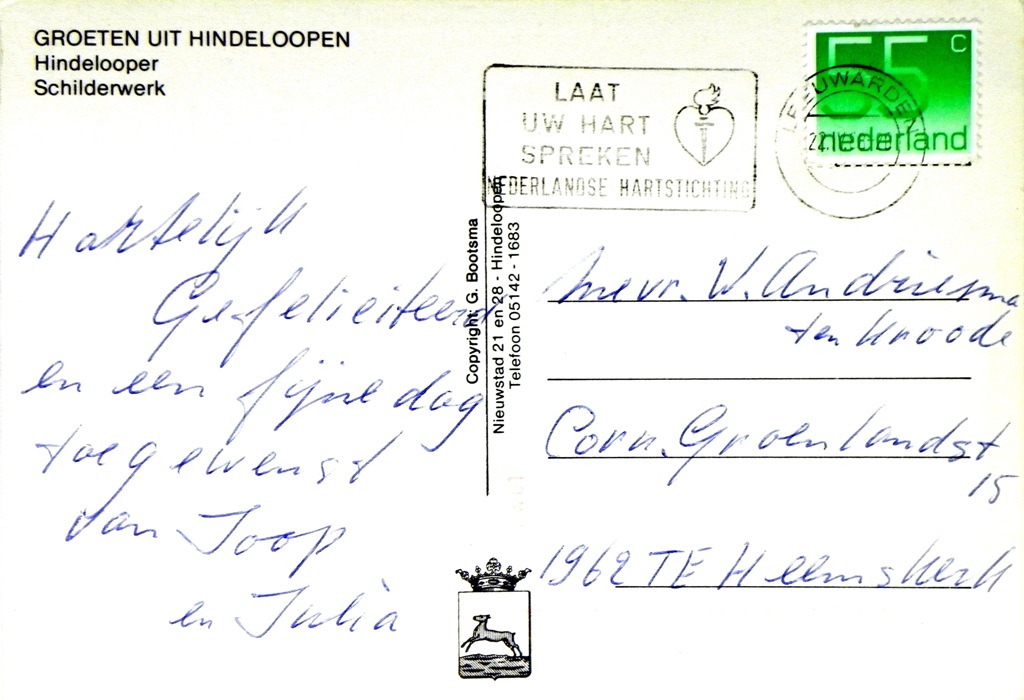 GROETEN UIT HINDELOOPEN
Hindelooper
Schilderwerk
LAAT
UW HART
SPREKEN
NEDERLANDSE HARTSTICHTING
LEEUWARDEN
22.IV
55 c
nederland
Hartelijk
Gefeliciteerd
en een fijne dag
toegewenst
van Joop
en Julia
Copyright: G. Bootsma
Nieuwstad 21 en 28 - Hindeloopen
Telefoon 05142 - 1683
Mevr. W. Andriesma
ten Kroode
Corn. Groenlandst
15
1962 TE Heemskerk